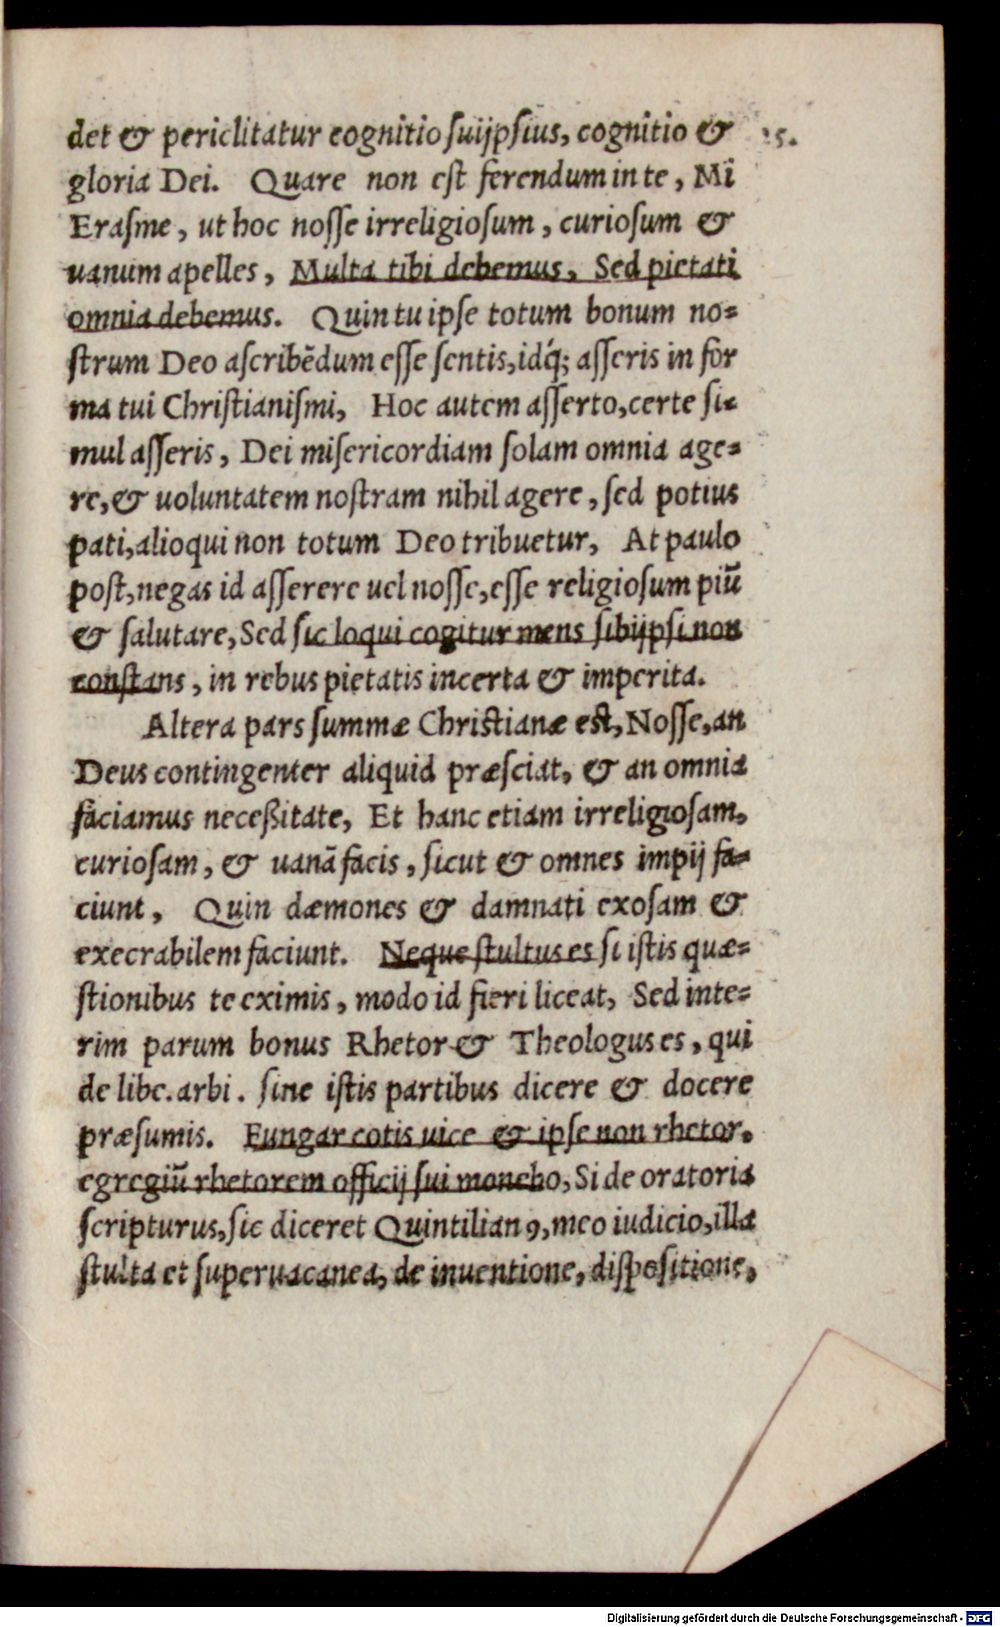 det & periclitatur cognitio suijpsius, cognitio & 25.
gloria Dei. Quare non est ferendum in te, Mi
Erasme, ut hoc nosse irreligiosum, curiosum &
uanum apelles, Multa tibi debemus, Sed pietati
omnia debemus. Quin tu ipse totum bonum no=
strum Deo ascribēdum esse sentis, idq́; asseris in for
ma tui Christianismi, Hoc autem asserto, certe si=
mul asseris, Dei misericordiam solam omnia age=
re, & uoluntatem nostram nihil agere, sed potius
pati, alioqui non totum Deo tribuetur, At paulo
post, negas id asserere uel nosse, esse religiosum piū
& salutare, Sed sic loqui cogitur mens sibijpsi non
constans, in rebus pietatis incerta & imperita.
Altera pars summæ Christianæ est, Nosse, an
Deus contingenter aliquid præsciat, & an omnia
faciamus neceßitate, Et hanc etiam irreligiosam,
curiosam, & uanā facis, sicut & omnes impij fa=
ciunt, Quin dæmones & damnati exosam &
execrabilem faciunt. Neque stultus es si istis quæ=
stionibus te eximis, modo id fieri liceat, Sed inte=
rim parum bonus Rhetor & Theologus es, qui
de libe. arbi. sine istis partibus dicere & docere
præsumis. Fungar cotis uice & ipse non rhetor,
egregiū rhetorem officij sui monebo, Si de oratoria
scripturus, sic diceret Quintilianꝰ, meo iudicio, illa
stulta et superuacanea, de inuentione, dispositione,
Digitalisierung gefördert durch die Deutsche Forschungsgemeinschaft - DFG